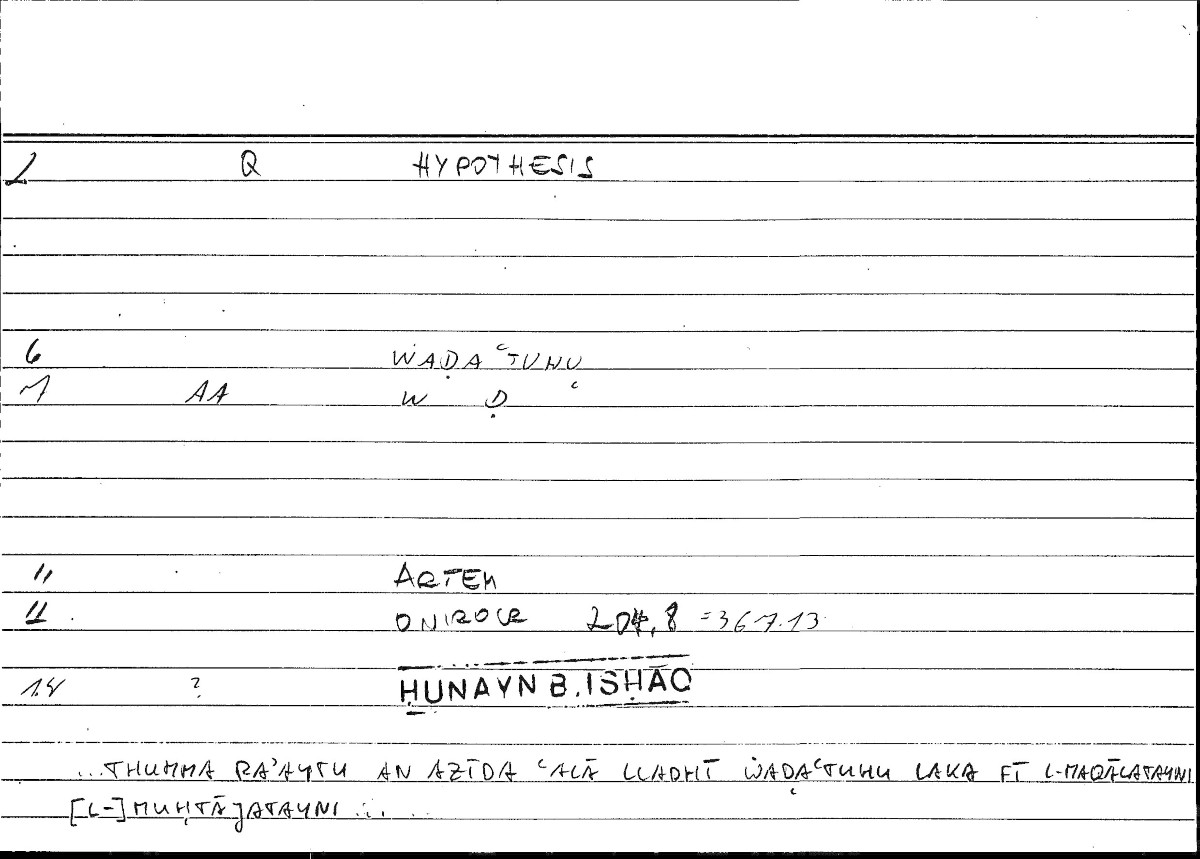 2 Q HYPOTHESIS
6 WAḌAʿTUHU
7 AA W Ḍ ʿ
11 ARTEM
11 ONIROCR 204,8 = 367.13
14 ? ḤUNAYN B. ISḤĀQ
...THUMMA RAʾAYTU AN AZĪDA ʿALĀ LLADHĪ WAḌAʿTUHU LAKA FĪ L-MAQĀLATAYNI
[L-]MUḤTĀJATAYNI ...